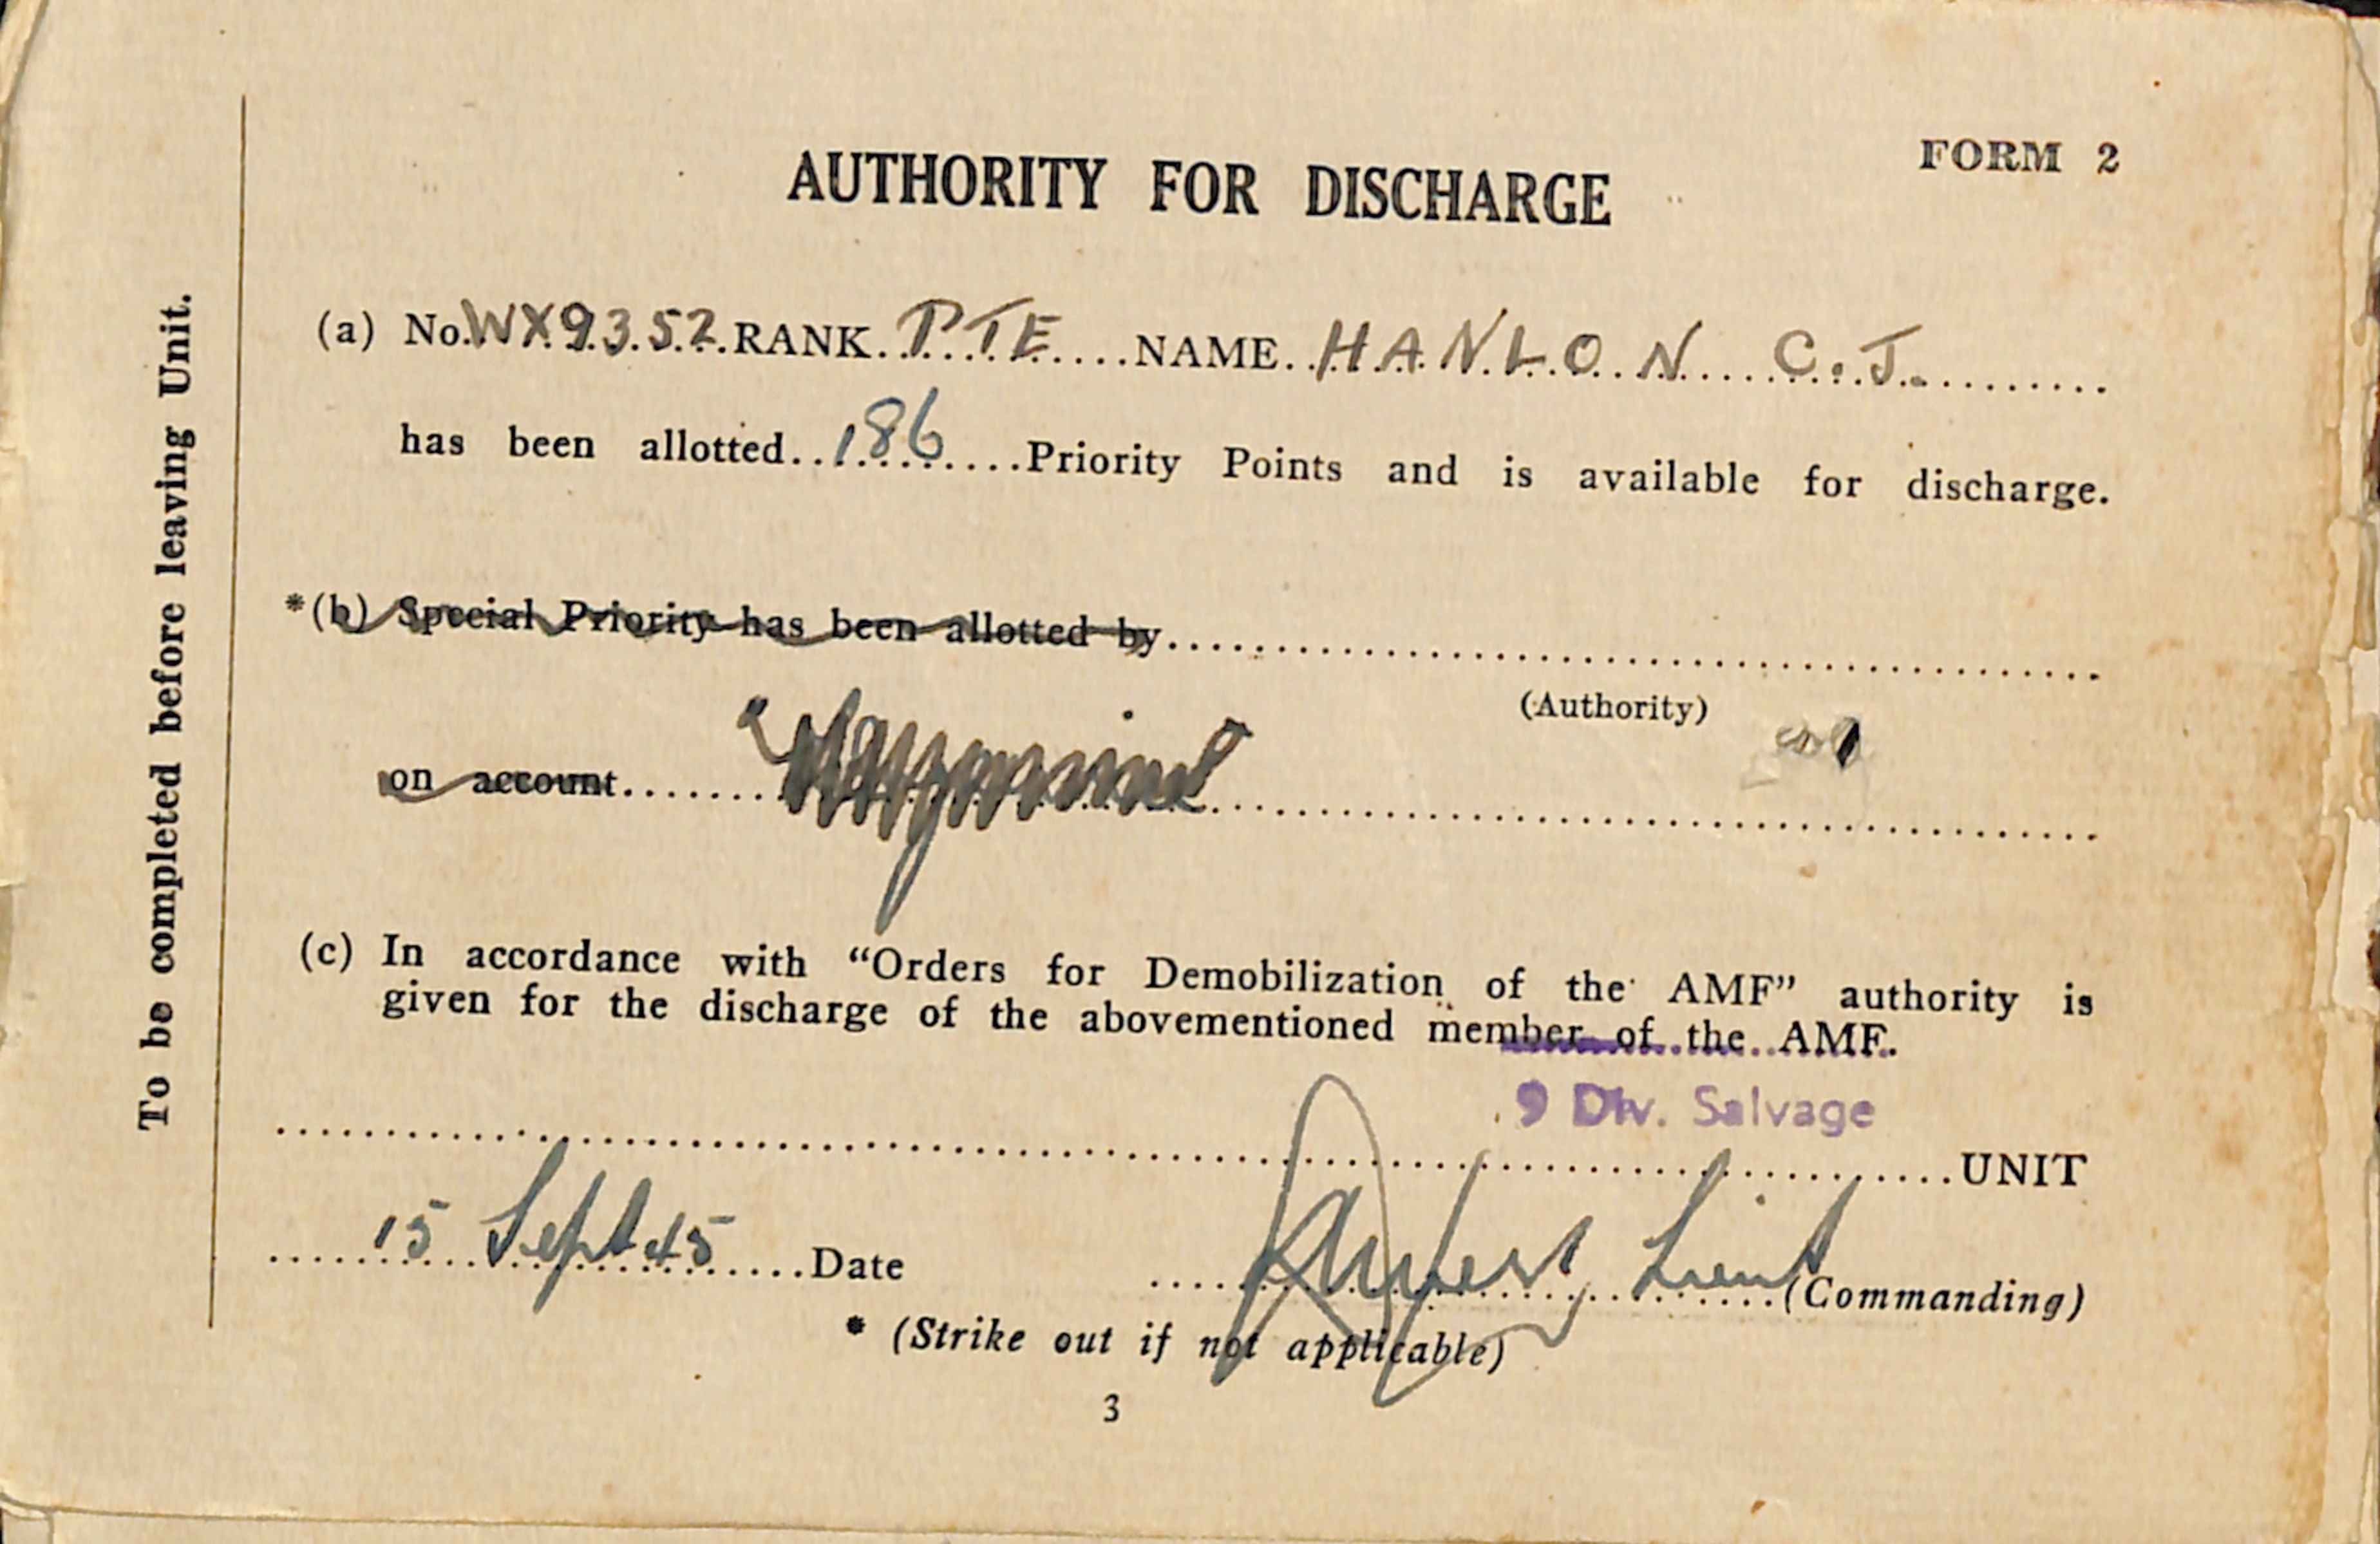 FORM 2
AUTHORITY FOR DISCHARGE
To be completed before leaving Unit.
(a) No. WX9352 RANK PTE NAME HANLON C.J.
has been allotted 186 Priority Points and is available for discharge.
*(b) Special Priority has been allotted by
(Authority)
on account
(c) In accordance with “Orders for Demobilization of the AMF” authority is
given for the discharge of the abovementioned member of the AMF.
9 Div. Salvage
UNIT
15 Sept 45 Date Lieut (Commanding)
* (Strike out if not applicable)
3